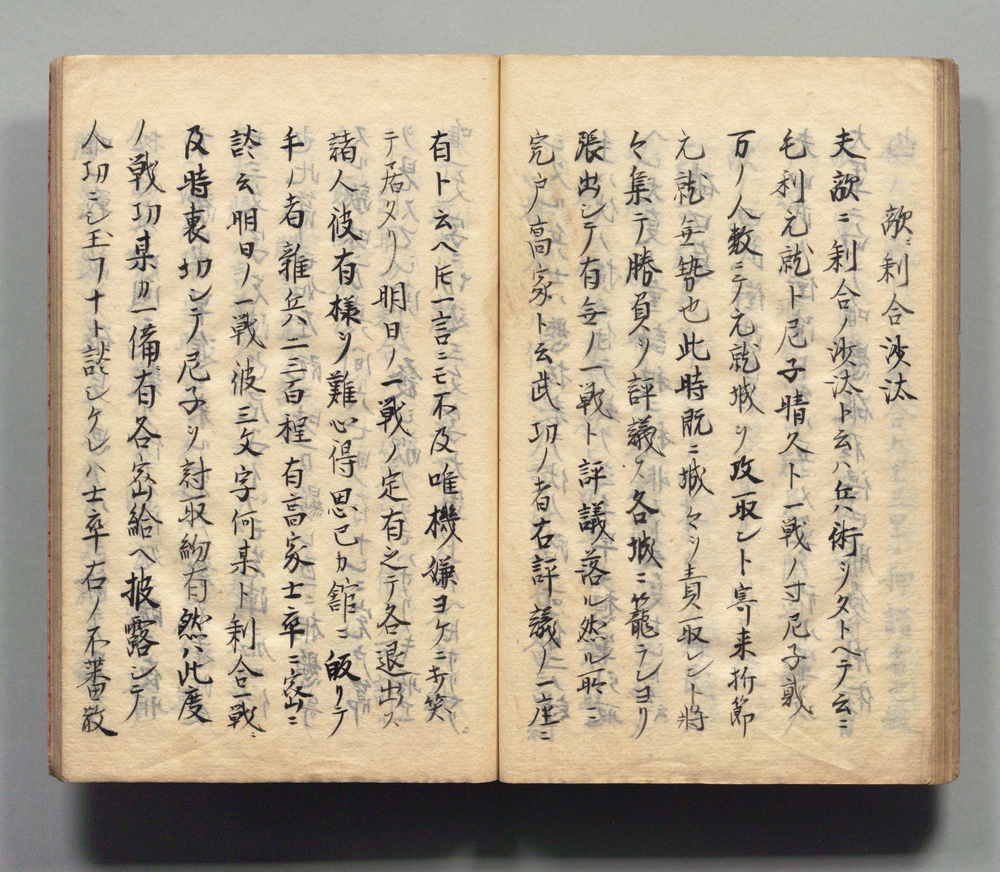 敵ニ利合沙汰
夫敵ニ利合ノ沙汰ト云ハ兵ハ術ヲタトヘテ云ニ
毛利元就ト尼子晴久ト一戦ノ寸尼子数
万ノ人数ニテ元就城ヲ攻取ント寄来折節
元就無勢也此時既ニ城々ヲ責取ント将
々集テ勝負ヲ評議ス各城ニ籠テヨリ
張出シテ有無ノ一戦ト評議落ル然ル所ニ
完戸高家ト云武功ノ者右評議ノ一座ニ
有ト云ヘ𪜈一言ニモ不及唯機ノ嫌ヨケニ打笑
テ居タリ明日ノ一戦ノ定有之テ各退出ス
諸人彼有様ヲ難心得思己カ館ニ皈リテ
手ノ者雑兵二三百程有高家士卒ニ密ニ
談云明日ノ一戦彼三文字何某ト利合一戦ニ
及時裏切シテ尼子ヲ討取約有然ハ此度
ノ戦功某カ一備有各密給ヘ披露シテ
人功ニシ玉フナト談シケレハ士卒右ノ不審散